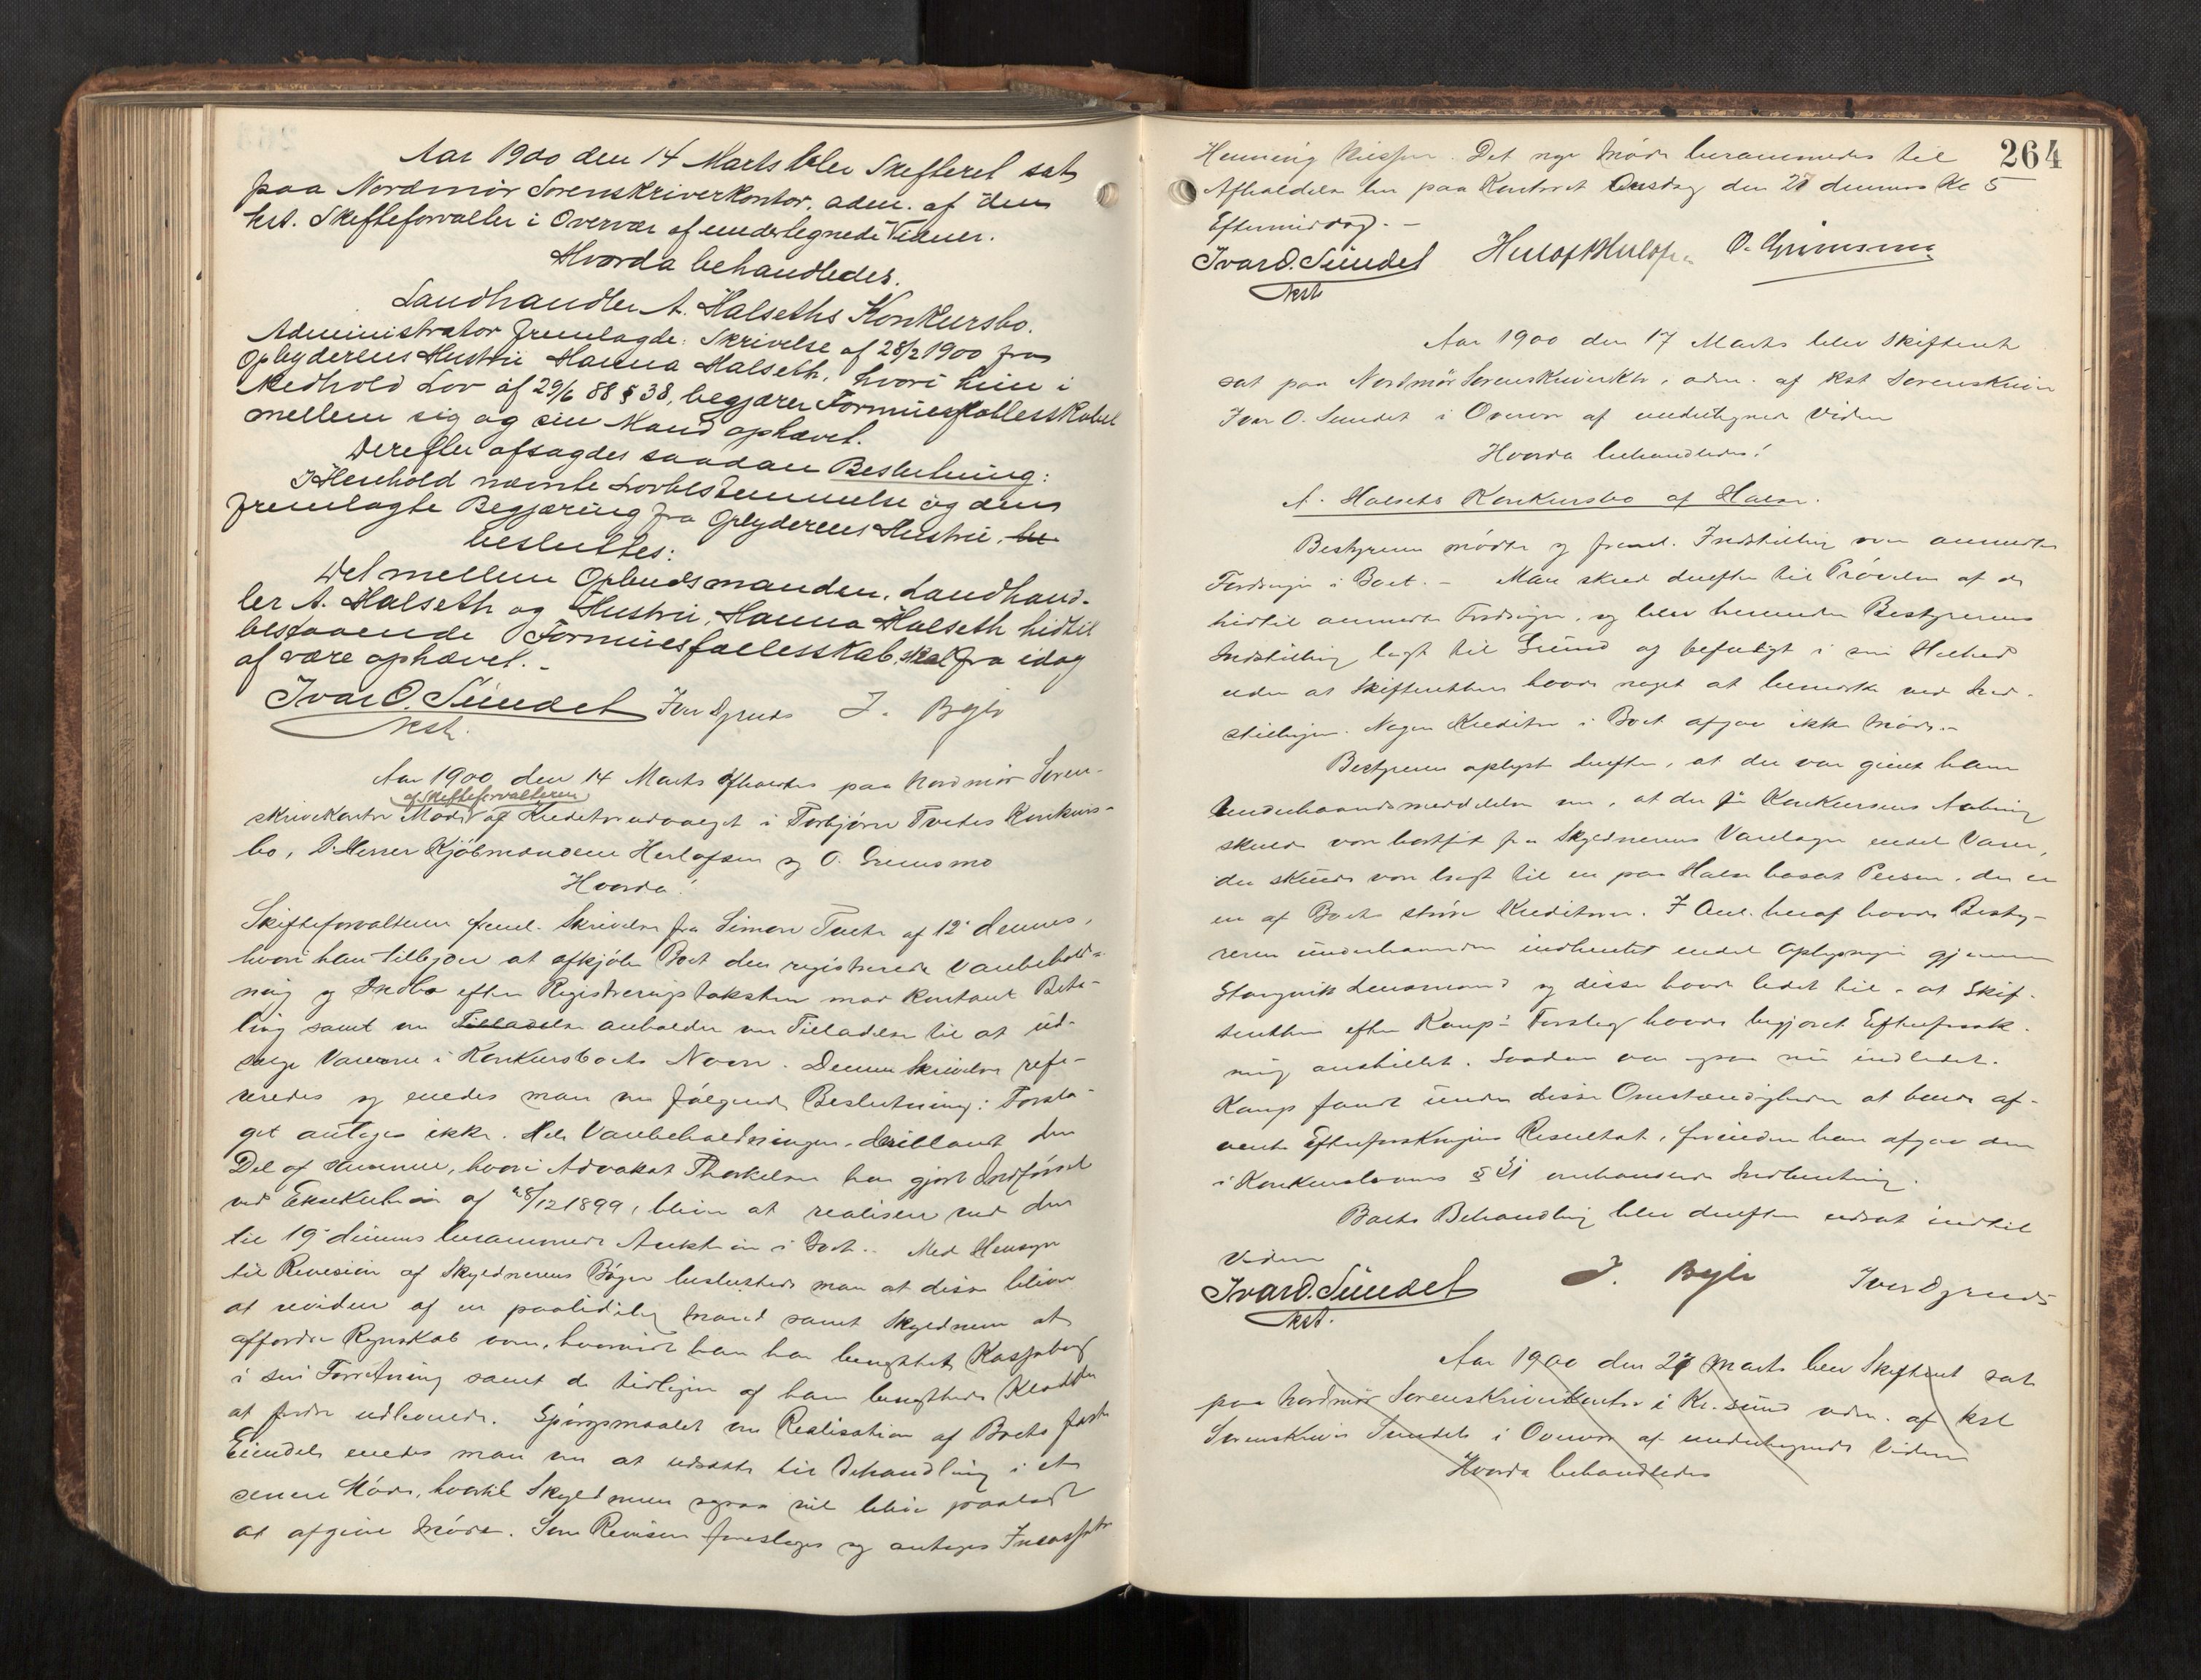 Aar 1900 den 14 Marts blev Skifteret sat
paa Nordmør Sorenskriverkontor, adm. af den
kst. Skifteforvalter i Overvær af undertegnede Vidner.
Hvorda behandledes.
Landhandler A. Halseths Konkursbo.
Administrator fremlagde: Skrivelse af 28/2 1900 fra
Opbyderens Hustru Hanna Halseth, hvori hun i
Medhold Lov af 29/6 88 § 38, begjærer Formuesfællesskabet
mellem sig og sin Mand ophævet.
Derefter afsagdes saadan Beslutning:
I Henhold nævnte Lovbestemmelse og den
fremlagte Begjæring fra Opbyderens Hustru, be
besluttes:
Det mellem Opbudsmanden, Landhand-
ler A. Halseth og Hustru, Hanna Halseth hidtil
bestaaende Formuesfællesskab skal fra idag
af være ophævet.-
Ivar O. Sundet J. Bye
kst.
Aar 1900 den 14 Marts afholdtes paa Nordmør Soren-
af Skifteforvalteren
skriverkontor Møde af Kreditorudvalget i Torbjørn Tvedes Konkurs-
bo, D'Herrer Kjøbmændene Herlofsen og O. Grimsmo
Hvorda!
Skifteforvalteren freml. Skrivelse fra Simon Tvete af 12' dennes,
hvori han tilbyder at afkjøbe Boet den registrerede Varebehold-
ning og Indbo efter Registreringstaksten mod kontant Beta-
ling samt om Tilladelse anholder om Tilladelse til at ud-
sælge Varerne i Konkursboets Navn. Denne Skrivelse refe-
reredes og enedes man om følgende Beslutning: Forsla-
get antages ikke. Hele Varebeholdningen, deriblandt den
Del af samme, hvori Advokat Thorkelsen har gjort Indførsel
ved Eksekution af 28/12 1899, bliver at realisere ved den
til 19' dennes berammede Auktion i Boet.- Med Hensyn
til Revision af Skyldnerens Bøger besluttede man at disse bliver
at revidere af en paalidelig Mand samt Skyldneren at
affordre Regnskab over, hvorvidt han har benyttet Kassabog
i sin Forretning samt de tidligere af ham benyttede Kladder
at fordre udleverede. Spørgsmaalet om Realisation af Boets faste
Eiendele enedes man om at udsætte til Behandling i et
senere Møde, hvortil Skyldneren ogsaa vil blive paalagt
at afgive Møde. Som Revisor foresloges og antoges
264
Henning Det nye Møde berammedes til
Afholdelse her paa Kontoret Onsdag den 21 dennes Kl 5
Eftermiddag.-
Ivar O. Sundet O. Grimsmo
kst
Aar 1900 den 17 Marts blev Skifteret
sat paa Nordmør Sorenskriverktr, adm. af kst Sorenskriver
Ivar O. Sundet i Overvær af undertegnede Vidner
Hvorda behandledes!
A. Halseths Konkursbo af Halse.
Bestyreren mødte og freml. Indstilling over anmeldte
Fordringer i Boet.- Man skred derefter til Prøvelse af de
hidtil anmeldte Fordringer, og blev herunder Bestyrerens
Indstilling lagt til Grund og befuligt i sin Helhed
uden at Skifteretten havde noget at bemærke ved Ind-
stillingen. Nogen Kreditor i Boet afgav ikke Møde.-
Bestyreren oplyste derefter, at der var givet ham
Underhaandsmeddelelse om, at der før Konkursens Aabning
skulde være bortført fra Skyldnerens Varelager endel Varer,
der skulde være bragt til en paa Halse bosat Person, der er
en af Boets større Kreditorer. I Anl. heraf havde Besty-
reren underhaanden indhentet endel Oplysninger gjennem
Stangvik Lensmand og disse havde ledet til, at Skif-
teretten efter Kamps Forslag havde begjæret Efterforsk-
ning anstillet. Saadan var ogsaa nu indledet.
Kamp fandt under disse Omstændigheder at burde af-
vente Efterforskningens Resultat, forinden han afgav den
i Konkurslovens § 21 omhandlede Indberetning.
Boets Behandling blev derefter udsat indtil
videre
Ivar O. Sundet J. Bye
kst.
Aar 1900 den 27 Marts blev Skifteret sat
paa Nordmør Sorenskriverkontor i Kr.sund adm. af kst
Sorenskriver Sundet i Overvær af undertegnede Vidner
Hvorda behandledes